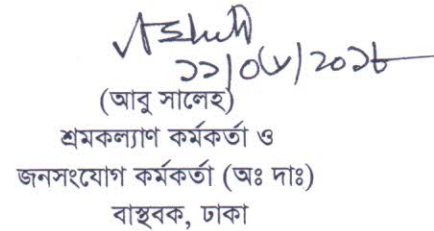 (আবু সালেহ)
শ্রমকল্যাণ কর্মকর্তা ও
জনসংযোগ কর্মকর্তা (অঃ দাঃ)
বাস্থবক, ঢাকা